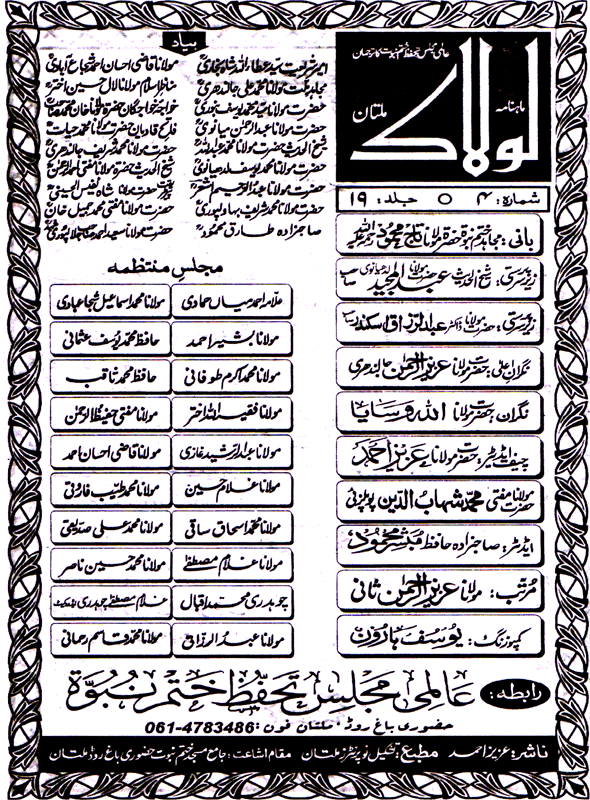 عالمی مجلس تحفظ ختم نبوت کا ترجمان
ماہنامہ
لولاک
ملتان
شمارہ: ۴ ۵ جلد: ۱۹
بانی: مجاہد ختم نبوۃ حضرۃ مولانا تاج محمود رحمۃ اللہ علیہ
زیر سرپرستی: شیخ الحدیث حضرۃ مولانا عبد المجید لدھیانوی صاحب
زیر سرپرستی: حضرت مولانا ڈاکٹر عبدالرزاق اسکندر صاحب
نگران اعلیٰ: حضرت مولانا عزیز الرحمن جالندھری
نگران: حضرت مولانا اللہ وسایا
چیف ایڈیٹر: حضرت مولانا عزیز احمد
حضرت مولانا مفتی محمد شہاب الدین پوپلزئی
ایڈیٹر: صاحبزادہ حافظ مبشر محمود
مرتب: مولانا عزیز الرحمن ثانی
کمپوزنگ: یوسف ہارون
بیاد
امیر شریعت سید عطاء اللہ شاہ بخاری مولانا قاضی احسان احمد شجاع آبادی
مجاہد ملت مولانا محمد علی جالندھری مناظر اسلام مولانا لال حسین اختر
حضرت مولانا سید محمد یوسف بنوری خواجہ خواجگان حضرۃ مولانا خان محمد صاحب
حضرت مولانا عبد الرحمن میانوی فاتح قادیان حضرت مولانا محمد حیات
شیخ الحدیث حضرۃ مولانا محمد عبداللہ حضرت مولانا محمد شریف جالندھری
حضرت مولانا محمد یوسف لدھیانوی شیخ الحدیث حضرۃ مولانا مفتی احمد الرحمن
حضرت مولانا عبد الرحیم اشعر حضرت مولانا شاہ نفیس الحسینی
حضرت مولانا محمد شریف بہاولپوری حضرت مولانا مفتی محمد جمیل خان
صاحبزادہ طارق محمود حضرت مولانا سعید احمد جلالپوری
مجلس منتظمہ
علامہ احمد میاں حمادی مولانا محمد اسماعیل شجاعبادی
مولانا بشیر احمد حافظ محمد یوسف عثمانی
مولانا محمد اکرم طوفانی حافظ محمد ثاقب
مولانا فقیر اللہ اختر مولانا مفتی حفیظ الرحمن
مولانا عبد الرشید غازی مولانا قاضی احسان احمد
مولانا غلام حسین مولانا محمد طیب فاروقی
مولانا محمد اسحاق ساقی مولانا محمد علی صدیقی
مولانا غلام مصطفےٰ مولانا محمد حسین ناصر
چوہدری محمد اقبال غلام مصطفےٰ چوہدری ایڈووکیٹ
مولانا عبد الرزاق مولانا محمد قاسم رحمانی
رابطہ: عالمی مجلس تحفظ ختم نبوۃ
حضوری باغ روڈ، ملتان فون: 061-4783486
ناشر: عزیز احمد مطبع: تشکیل نو پرنٹرز ملتان مقام اشاعت: جامع مسجد ختم نبوت حضوری باغ روڈ ملتان